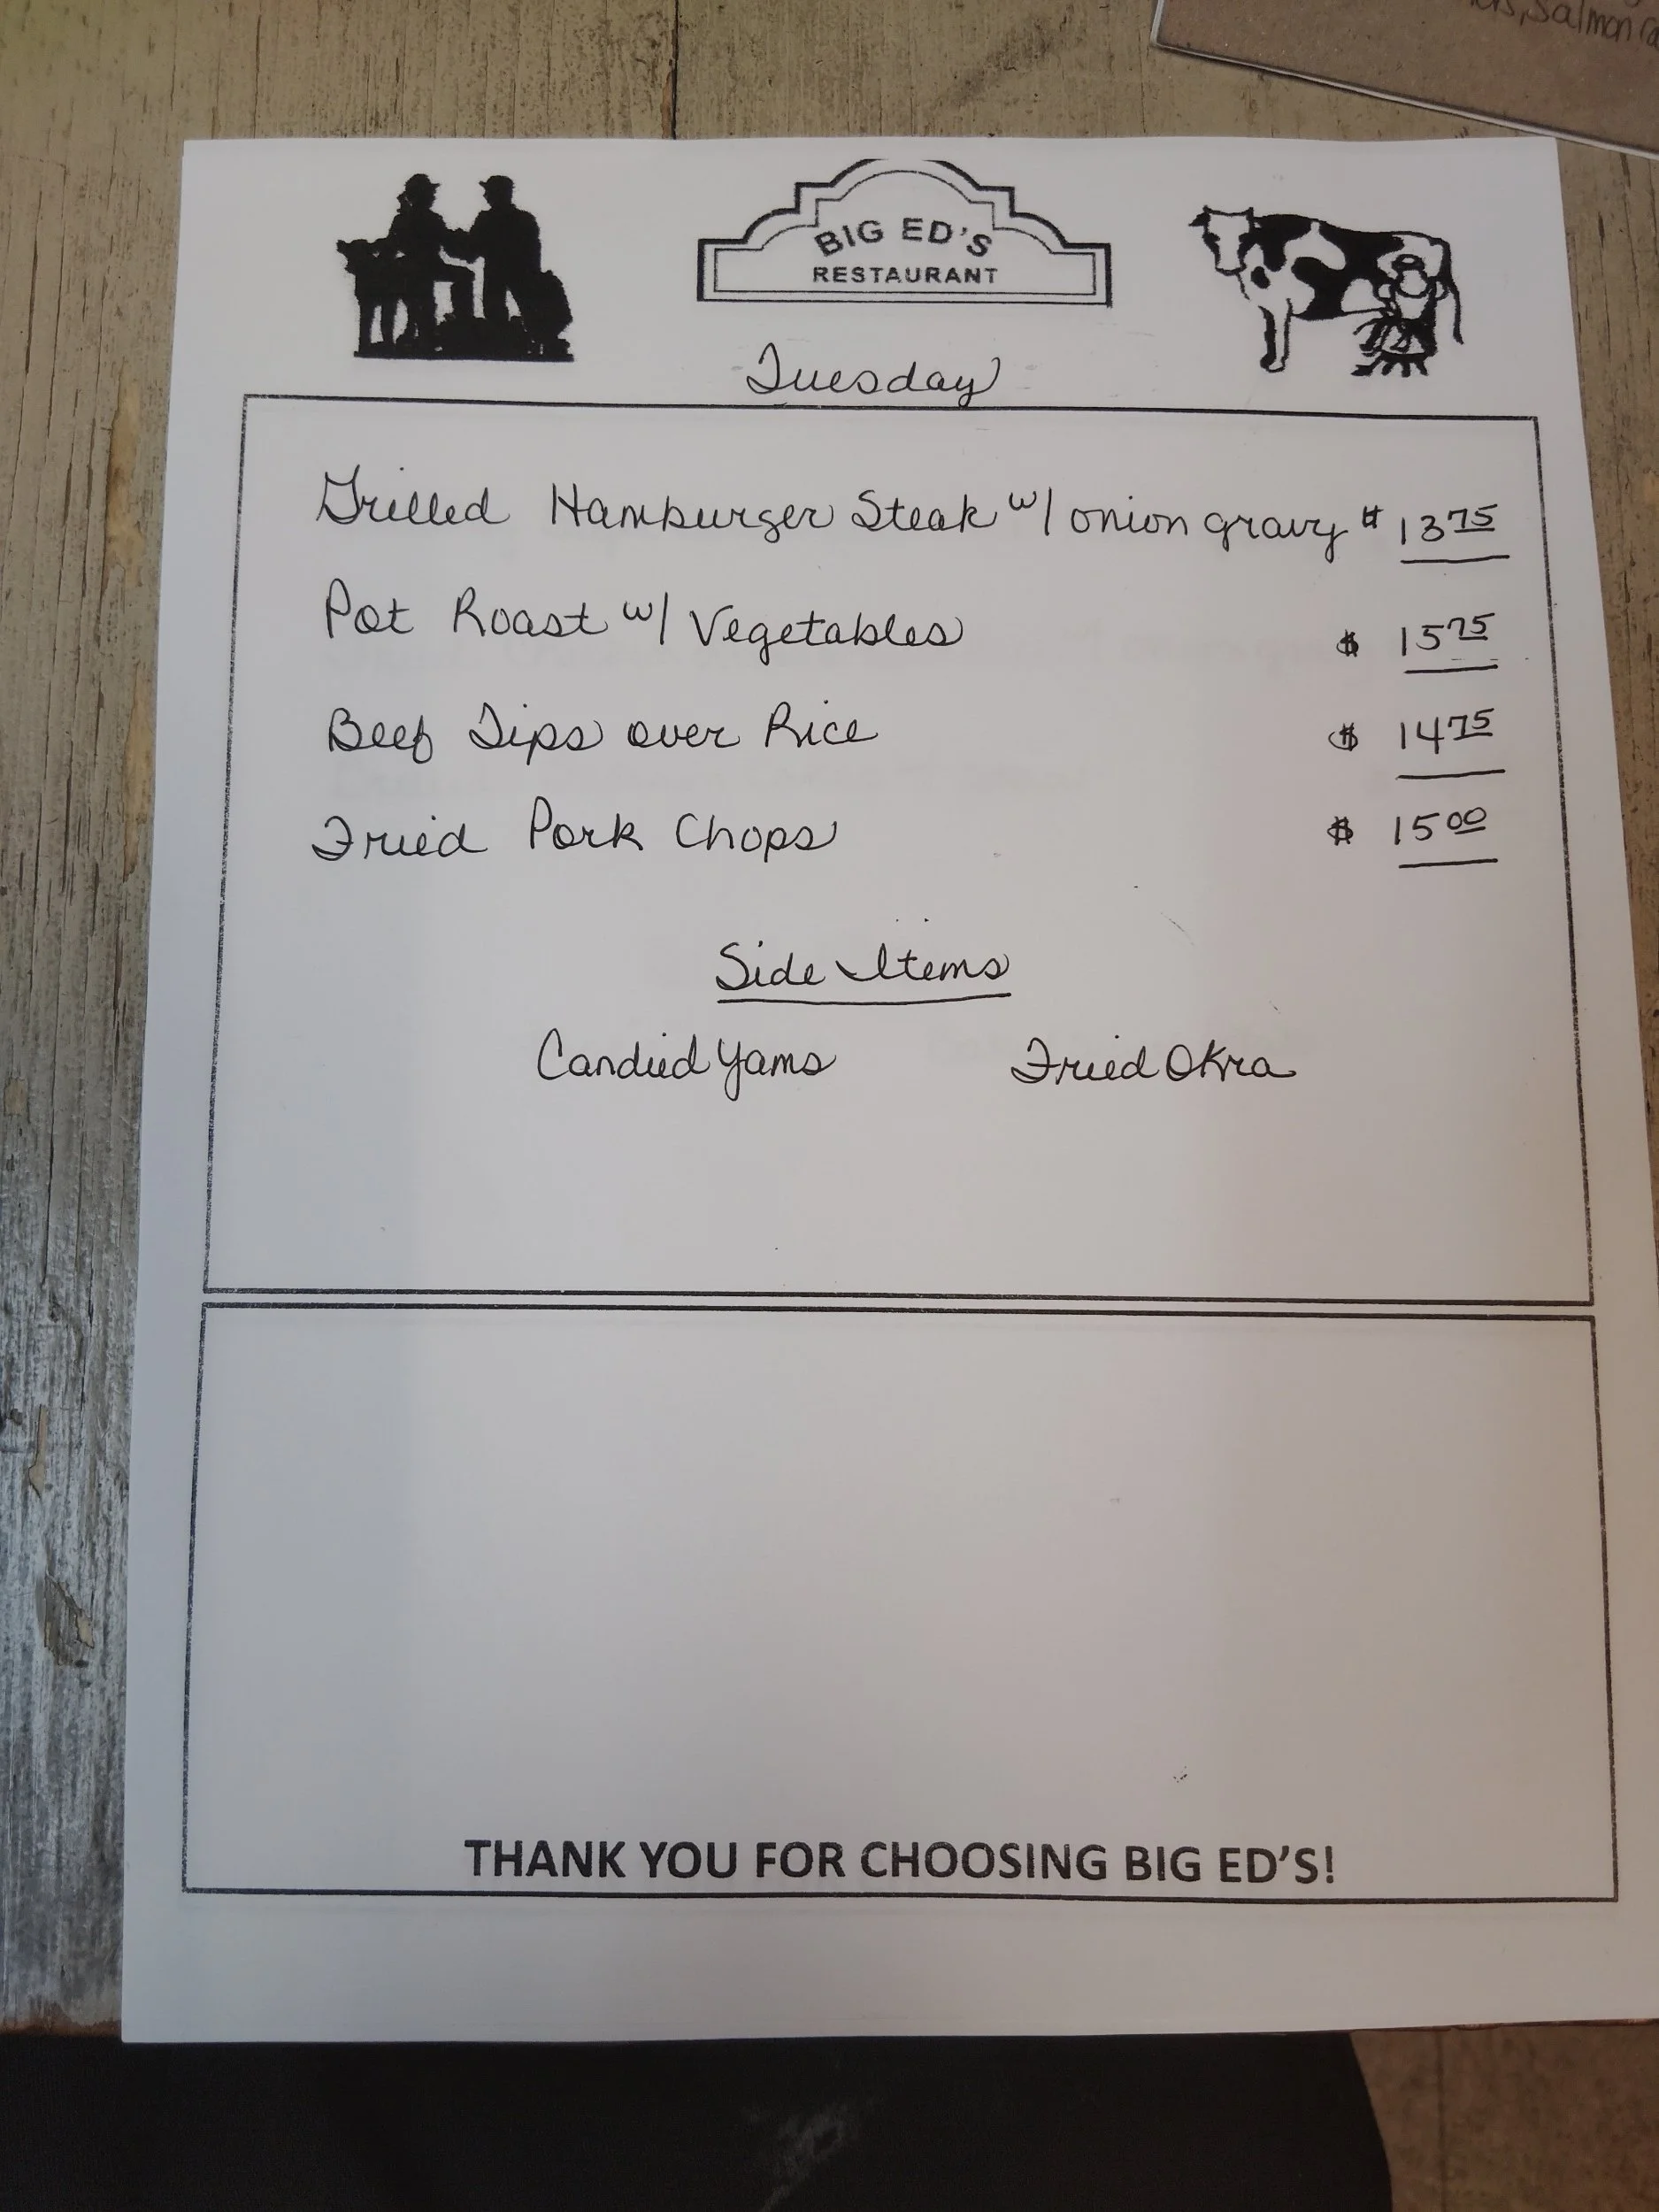 Salmon
BIG ED'S
RESTAURANT
Tuesday
Grilled Hamburger Steak w/ onion gravy $ 13 75
Pot Roast w/ Vegetables $ 15 75
Beef Tips over Rice $ 14 75
Fried Pork Chops $ 15 00
Side Items
Candied Yams Fried Okra
THANK YOU FOR CHOOSING BIG ED'S!